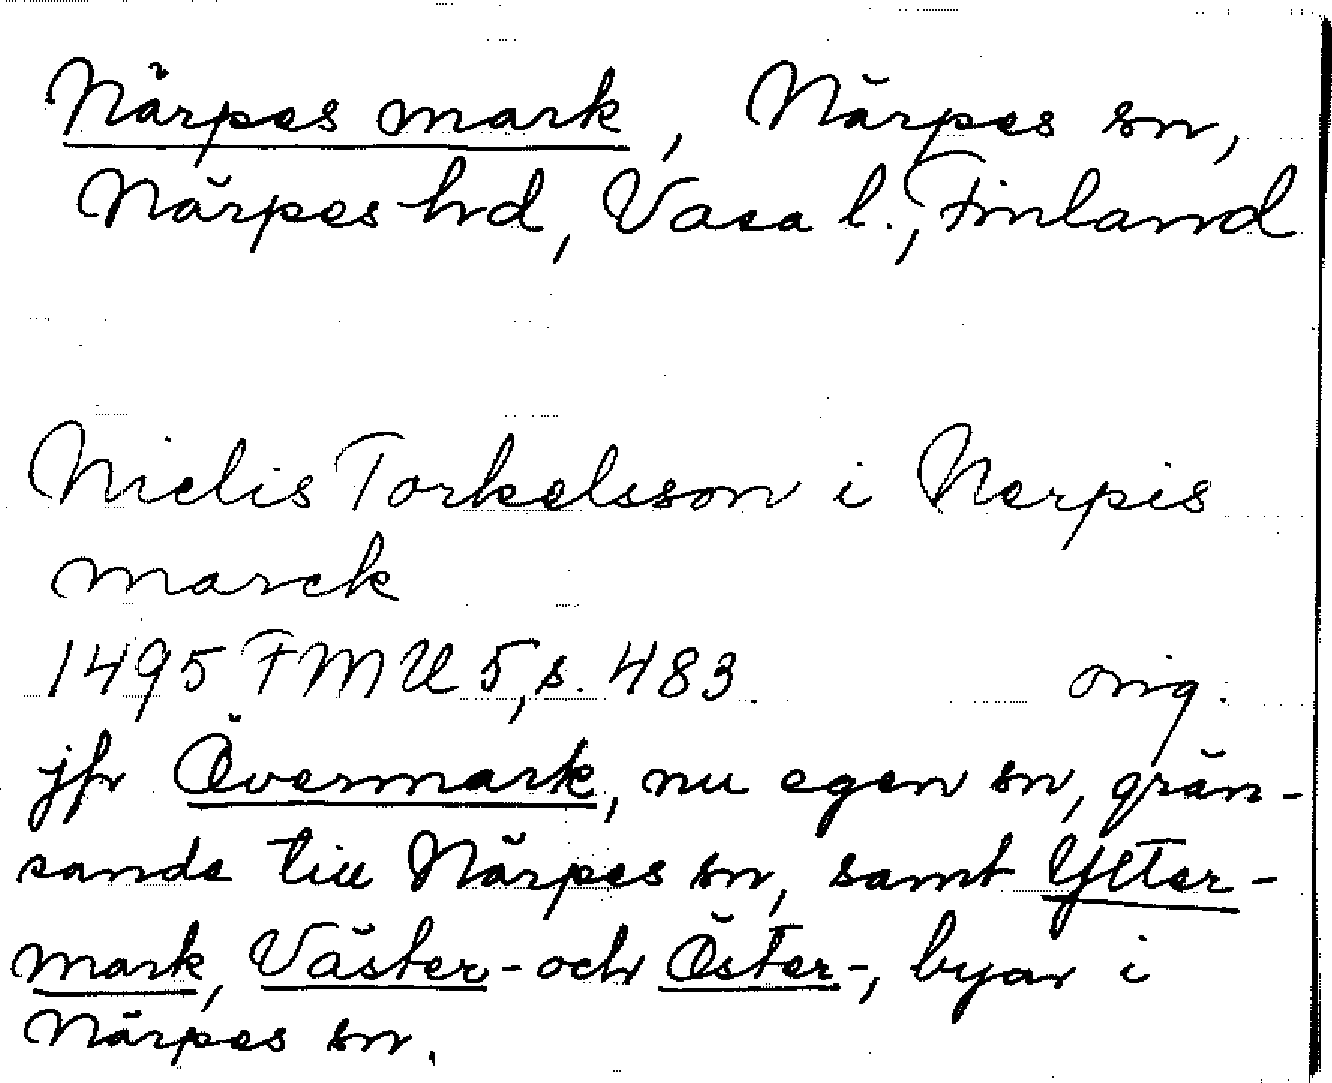 Närpes mark, Närpes sn,
Närpes hrd, Vasa l., Finland
Nielis Torkelsson i Nerpis
marck
1495 FMU 5, s. 483. orig.
jfr Övermark, nu egen sn, grän-
sande till Närpes sn, samt Ytter-
mark, Väster- och Öster-, byar i
Närpes sn.